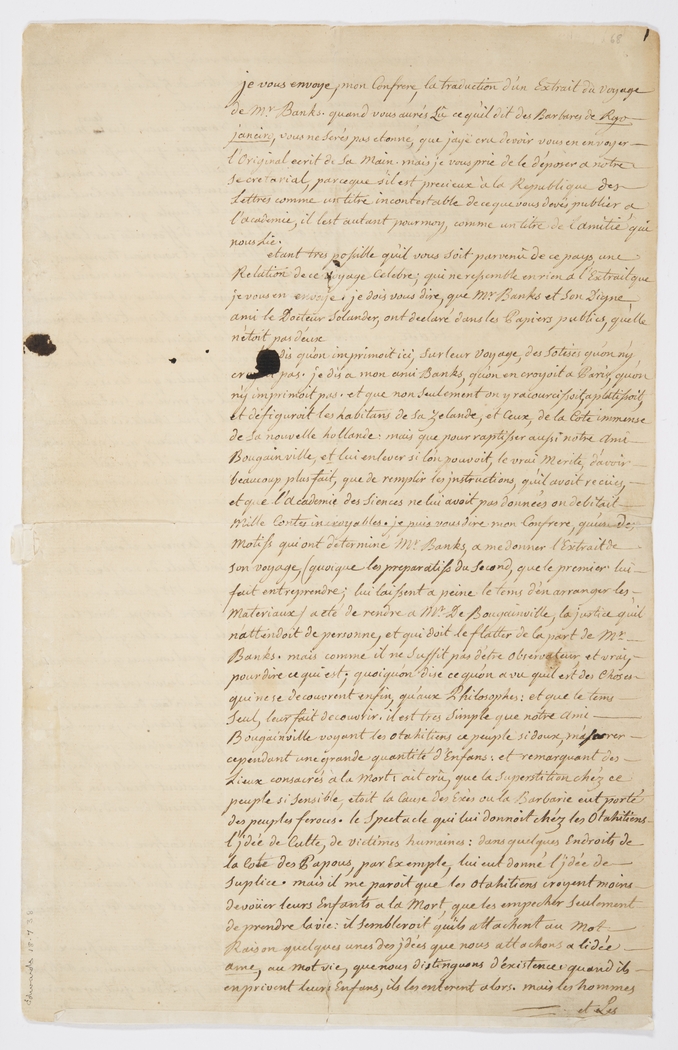 68
je vous envoye, mon Confrere, la traduction d'un Extrait du voyage
de Mr Banks. quand vous aurés Lû ce qu'il dit des Barbares de Ryo
janeiro, vous ne serés pas etonné, que jaye cru devoir vous en envoyer
l'Original ecrit de Sa Main. mais je vous prie de le déposer a notre
Secretarial, parceque s'il est precieux à la Republique des
Lettres comme un titre incontestable de ce que vous devés publier a
l'académie, il l'est autant pour moy, comme un titre de l'amitié qui
nous Lie.
etant tres possible qu'il vous soit parvenû de ce pays une
Relation de ce voyage Celebre; qui ne ressemble en rien a l'Extrait que
je vous en envoye: je dois vous dire, que Mr Banks et son Digne
ami le Docteur Solander, ont declaré dans les Papiers publics, qu'elle
n'étoit pas d'eux
dis qu'on imprimoit ici, sur leur voyage, des sotises qu'on n'y
pas. je dis a mon ami Banks, qu'on en croyoit à Paris, qu'on
n'y imprimoit pas. et que non seulement on y racourcissoit, aplatissoit,
et defiguroit les habitans de sa Zelande, et Ceux, de la Cote immense
de sa nouvelle hollande: mais que pour raptisser aussi notre ami
Bougainville, et lui enlever si l'on pouvoit, le vrai Merite, d'avoir
beaucoup plus fait, que de remplir les instructions, qu'il avoit recües,
et que l'Academie des Siences ne lui avoit pas données on debitait
Mille Contes incroyables. je puis vous dire mon Confrere, qu'un des
Motifs qui ont déterminé Mr Banks, a me donner l'Extrait de
son voyage, (quoique les preparatifs du Second, que le premier lui
fait entreprendre; lui laissent a peine le tems d'en arranger les
Materiaux) a eté de rendre a Mr De Bougainville, la justice qu'il
n'attendoit de personne, et qui doit le flatter de la part de Mr
Banks. mais comme il ne suffit pas d'etre observateur, et vrai,
pour dire ce qui est; quoiqu'on dise ce qu'on a vu qu'il est des choses
qui ne se decouvrent enfin, qu'aux Philosophes: et que le tems
Seul, leur fait decouvrir. il est tres simple que notre ami
Bougainville voyant les otahitiens ce peuple si doux, massacrer
cependant une grande quantité d'Enfans: et remarquant des
Lieux consacrés à la Mort, ait crû, que la Superstition chez ce
peuple si sensible, etoit la Cause des Exès ou la Barbarie eut porté
des peuples feroces. le Spectacle qui lui donnoit chéz les Otahitiens
l'jdée de Culte, de victimes humaines: dans quelques Endroits de
la Cote des Papous, par Exemple, lui eut donné l'jdée de
Suplice. mais il me paroit que les Otahitiens croyent moins
devoüer leurs Enfants a la Mort, que les empecher Seulement
de prendre la vie: il sembleroit qu'ils attachent au Mot
Raison quelques unes des jdées que nous attachons a l'idée
ame, au mot vie, que nous distinguons d'existence quand ils
en privent leurs Enfans, ils les enterent alors. mais les hommes
et Les